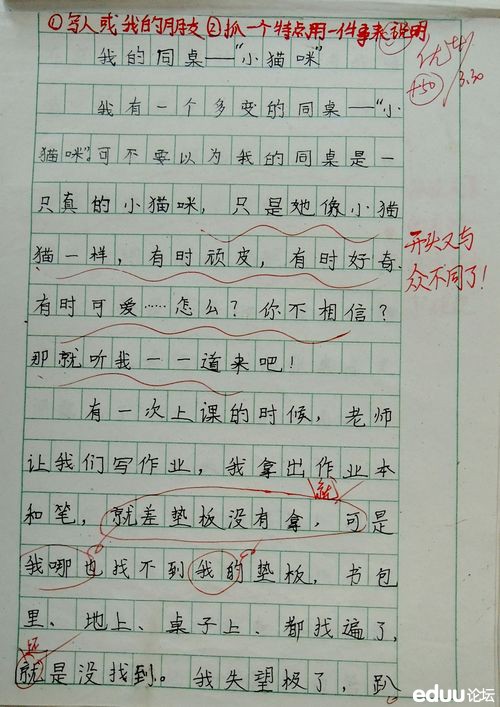 ①写人或我的朋友②抓一个特点用一件事来说明
我的同桌——“小猫咪”
优
+50
3.30
我有一个多变的同桌——“小
猫咪”。可不要以为我的同桌是一
只真的小猫咪，只是她像小猫
猫一样，有时顽皮，有时好奇，
有时可爱……怎么？你不相信？
那就听我一一道来吧！
开头又与
众不同了！
有一次上课的时候，老师
让我们写作业，我拿出作业本
就
和笔，就差垫板没有拿，可是
我哪也找不到我的垫板，书包
里、地上、桌子上、都找遍了，
还
就是没找到。我失望极了，趴
eduu论坛